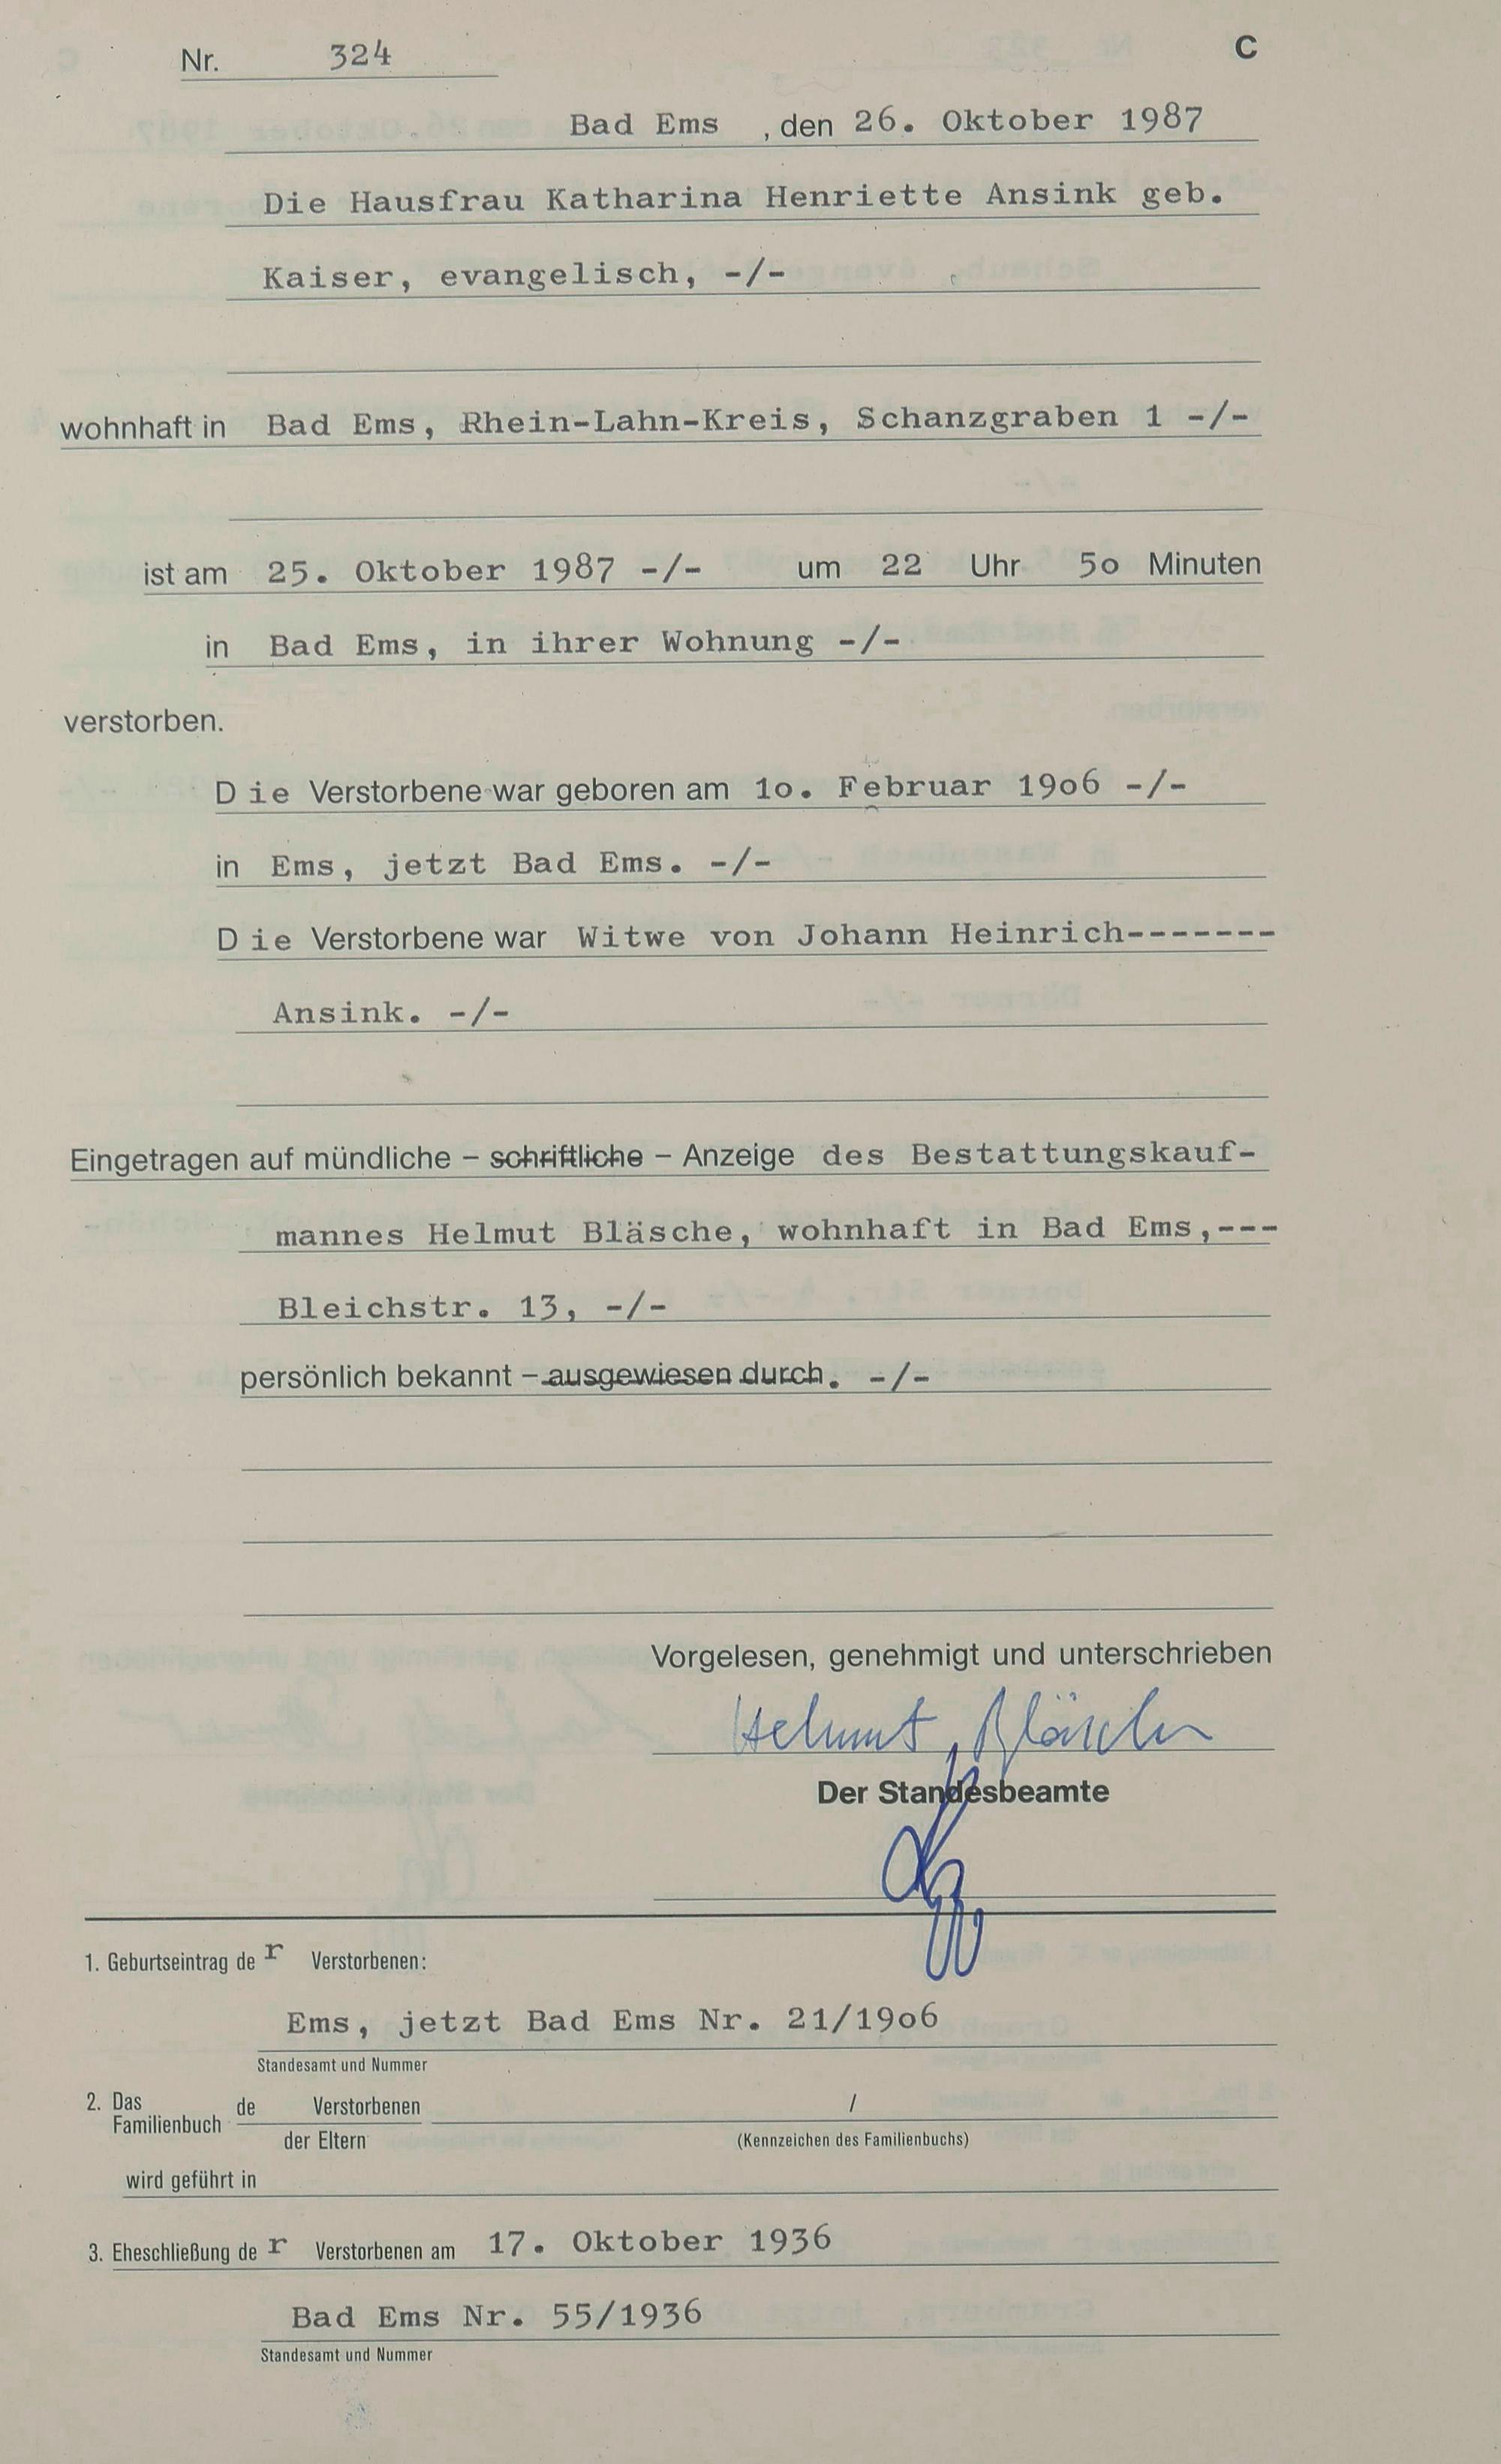 Nr. 324 C
Bad Ems , den 26. Oktober 1987
Die Hausfrau Katharina Henriette Ansink geb.
Kaiser, evangelisch, -/-
wohnhaft in Bad Ems, Rhein-Lahn-Kreis, Schanzgraben 1 -/-
ist am 25. Oktober 1987 -/- um 22 Uhr 5o Minuten
in Bad Ems, in ihrer Wohnung -/-
verstorben.
Die Verstorbene war geboren am 1o. Februar 19o6 -/-
in Ems, jetzt Bad Ems. -/-
Die Verstorbene war Witwe von Johann Heinrich-------
Ansink. -/-
Eingetragen auf mündliche – schriftliche – Anzeige des Bestattungskauf-
mannes Helmut Bläsche, wohnhaft in Bad Ems,---
Bleichstr. 13, -/-
persönlich bekannt – ausgewiesen durch. -/-
Vorgelesen, genehmigt und unterschrieben
Helmut Bläsche
Der Standesbeamte
1. Geburtseintrag der Verstorbenen:
Ems, jetzt Bad Ems Nr. 21/19o6
Standesamt und Nummer
2. Das de Verstorbenen /
Familienbuch der Eltern (Kennzeichen des Familienbuchs)
wird geführt in
3. Eheschließung der Verstorbenen am 17. Oktober 1936
Bad Ems Nr. 55/1936
Standesamt und Nummer